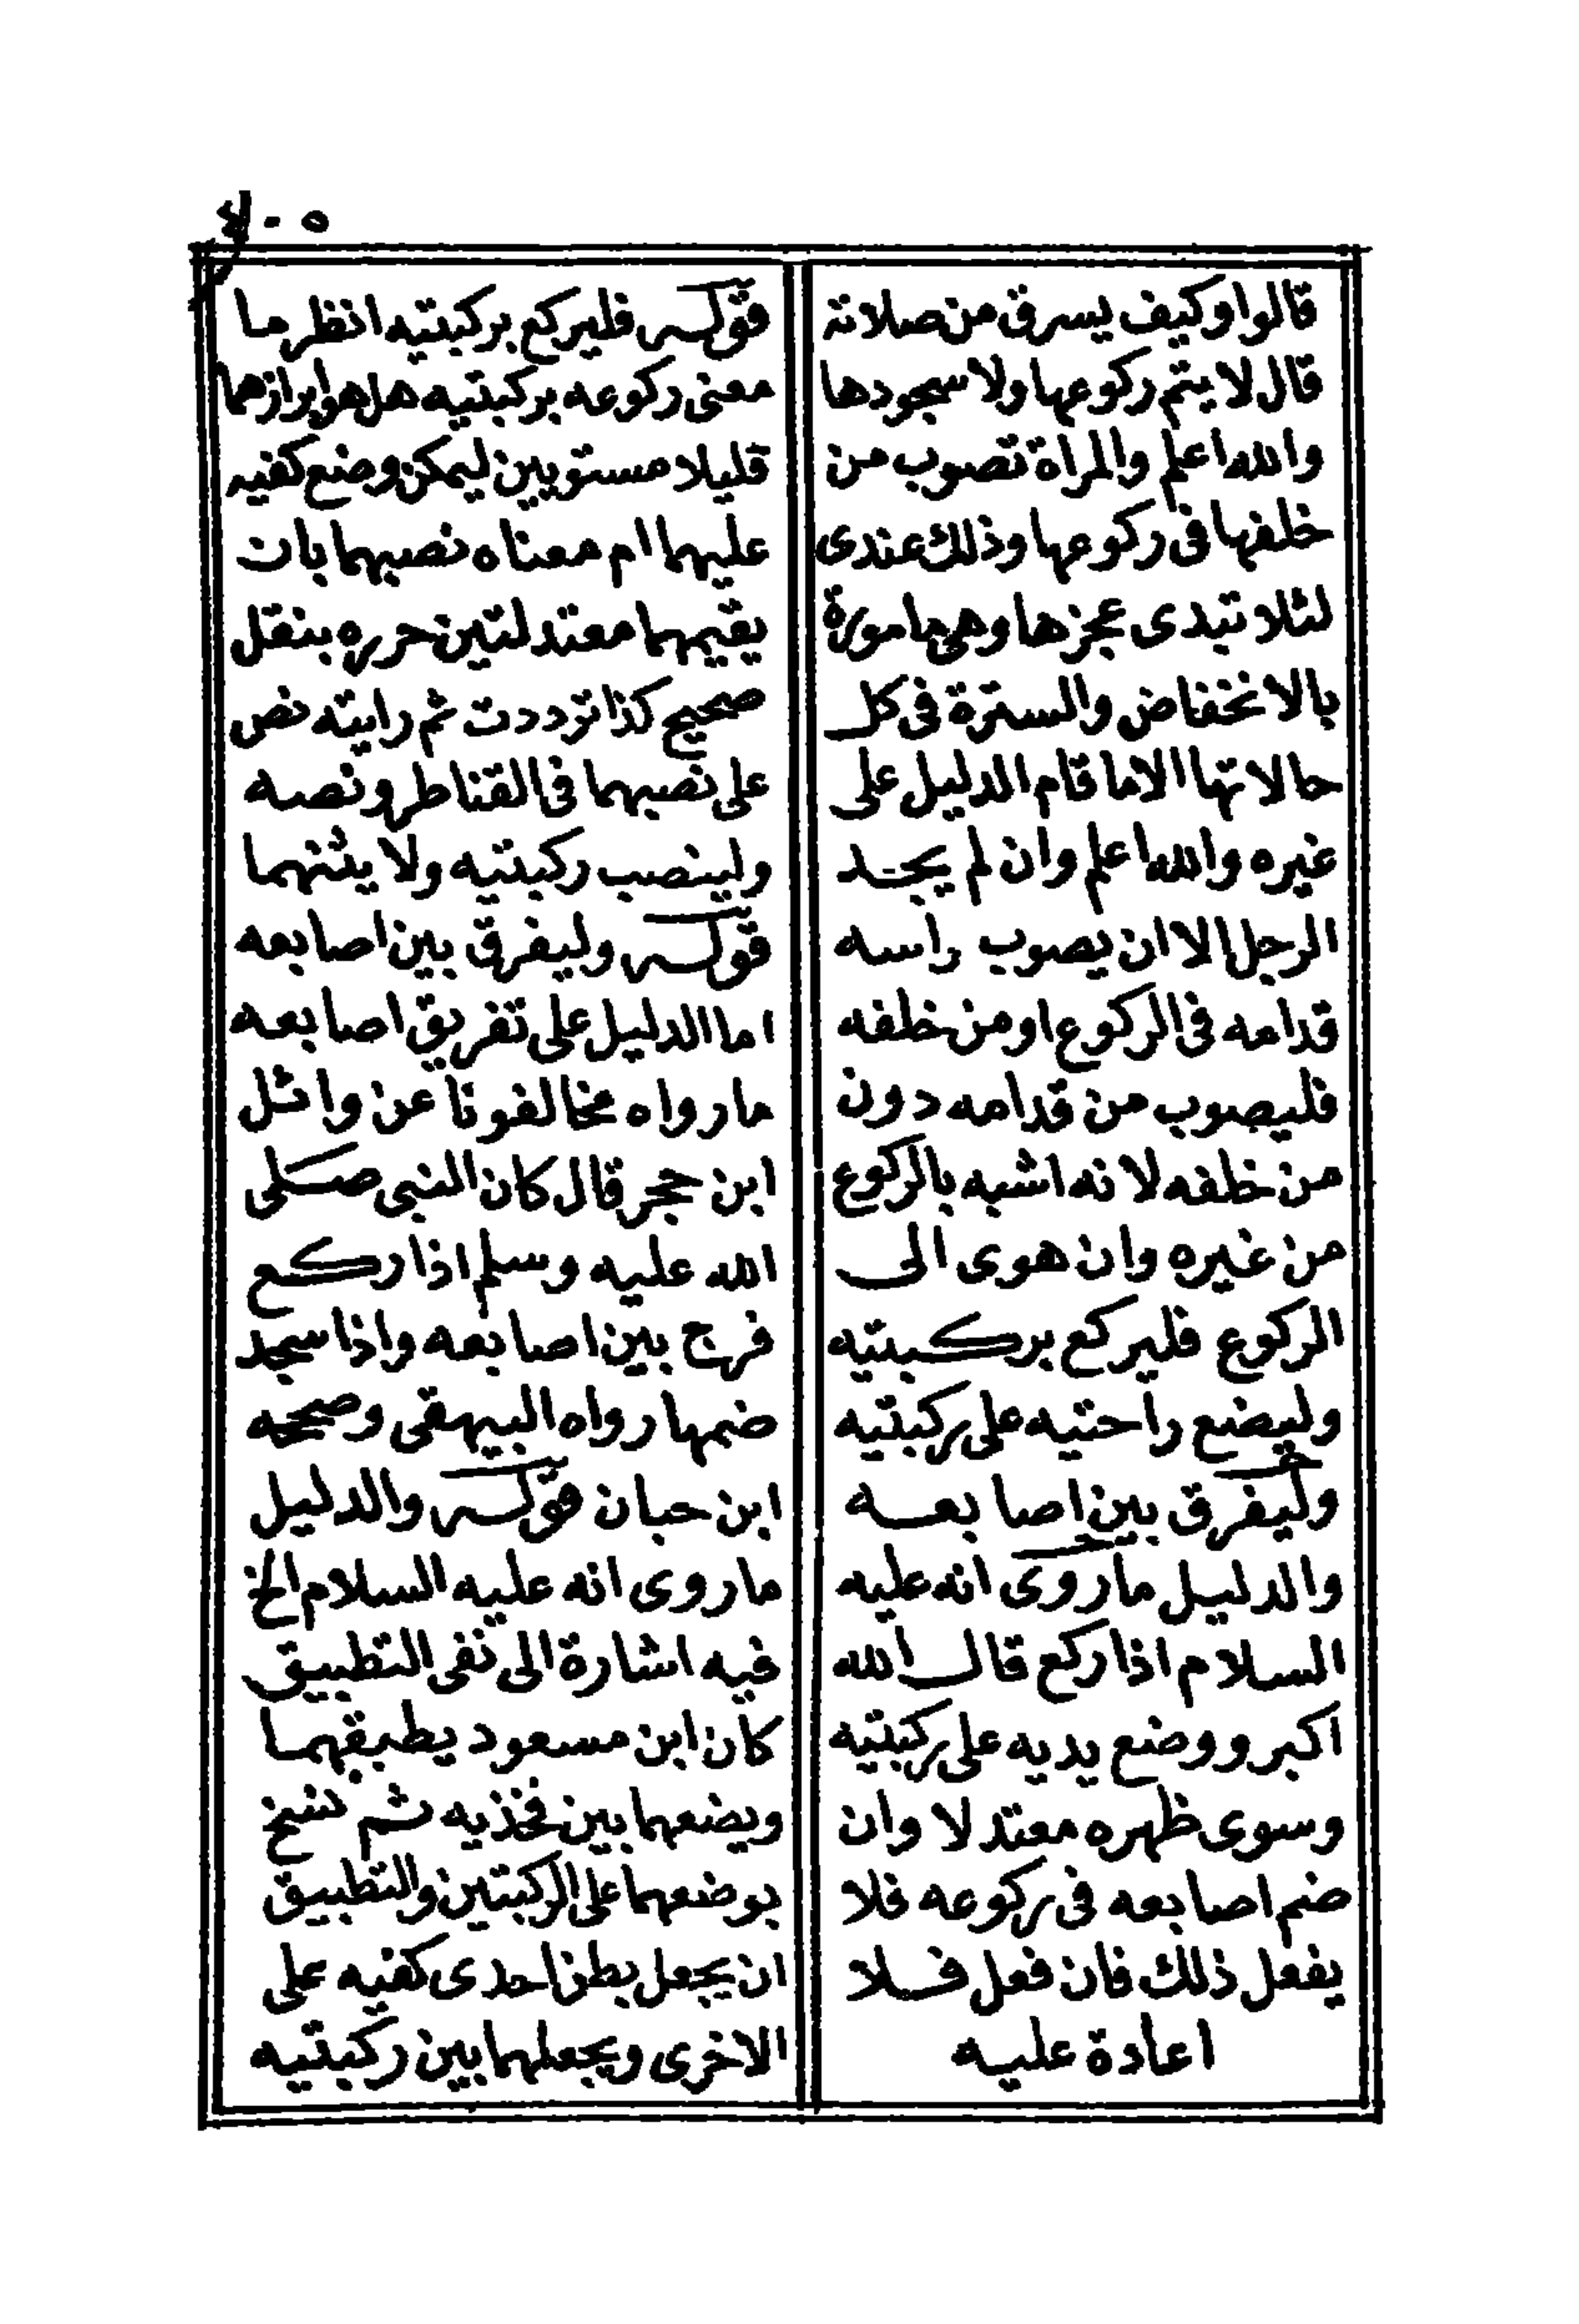 قالوا وكيف يسرق من صلاته
قال لا يتم ركوعها ولا سجودها
والله اعلم والمراة تصوب من
خلفها فى ركوعها وذلك عندى
لئلا تبدى عجزها وهى مامورة
بالانخفاض والسترة فى كل
حالاتها الا ما قام الدليل على
غيره والله اعلم وان لم يجد
الرجل الا ان يصوب راسه
قدامه فى الركوع او من خلفه
فليصوب من قدامه دون
من خلفه لانه اشبه بالركوع
من غيره وان هوى الى
الركوع فليركع بركبتيه
وليضع راحتيه على ركبتيه
وليفرق بين اصابعه
والدليل ما روى انه عليه
السلام اذا ركع قال الله
اكبر ووضع يديه على ركبتيه
وسوى ظهره معتدلا وان
ضم اصابعه فى ركوعه فلا
يفعل ذلك فان فعل فلا
اعادة عليه
قوله فليركع بركبتيه انظر ما
معنى ركوعه بركبتيه هل هو ابرازهما
قليلا مستويين ليمكن وضع كفيه
عليهما ام معناه نصبهما بان
يقيمهما معتدلتين حرره بنقل
صحيح كذا ترددت ثم رايته نص
على نصبهما فى القناطر ونصه
ولينصب ركبتيه ولا يثنهما
قوله وليفرق بين اصابعه
اما الدليل على تفريق اصابعه
ما رواه مخالفونا عن وائل
ابن حجر قال كان النبى صلى
الله عليه وسلم اذا ركع
فرج بين اصابعه واذا سجد
ضمها رواه البيهقى وصححه
ابن حبان قوله والدليل
ما روى انه عليه السلام الخ
فيه اشارة الى نفى التطبيق
كان ابن مسعود يطبقهما
ويضعهما بين فخذيه ثم نسخ
بوضعهما على الركبتين والتطبيق
ان يجعل بطن احدى كفيه على
الاخرى ويجعلهما بين ركبتيه